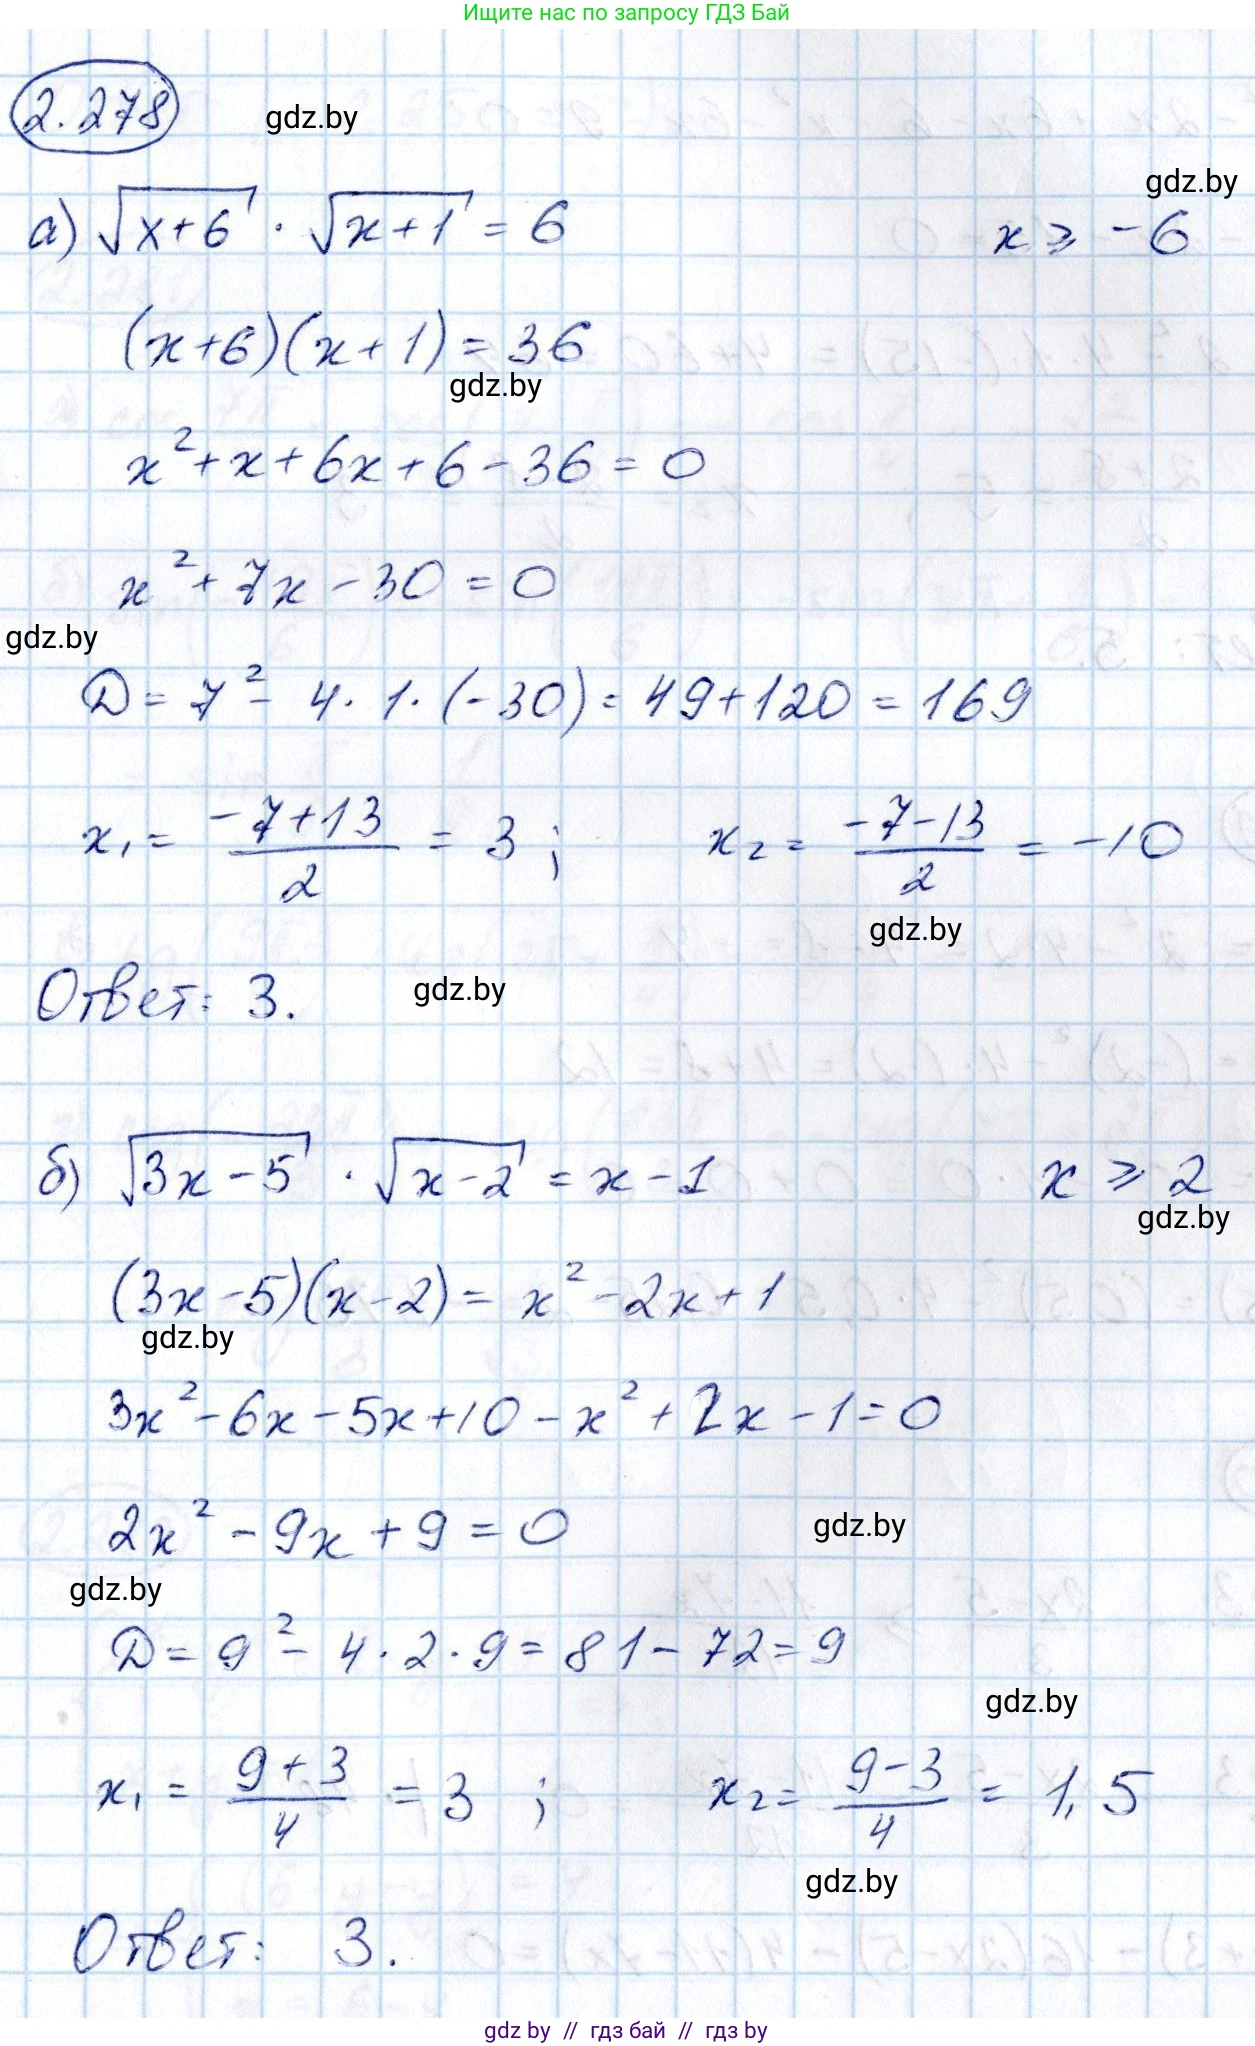 Ищите нас по запросу ГДЗ Бай
2.278
gdz.by
gdz.by
а) √(x+6) · √(x+1) = 6    x ⩾ -6
(x+6)(x+1) = 36
gdz.by
x² + x + 6x + 6 - 36 = 0
x² + 7x - 30 = 0
gdz.by
D = 7² - 4 · 1 · (-30) = 49 + 120 = 169
x₁ = (-7+13)/2 = 3 ;    x₂ = (-7-13)/2 = -10
gdz.by
Ответ: 3.
gdz.by
б) √(3x-5) · √(x-2) = x - 1    x ⩾ 2
gdz.by
(3x-5)(x-2) = x² - 2x + 1
gdz.by
3x² - 6x - 5x + 10 - x² + 2x - 1 = 0
2x² - 9x + 9 = 0
gdz.by
gdz.by
D = 9² - 4 · 2 · 9 = 81 - 72 = 9
gdz.by
x₁ = (9+3)/4 = 3 ;    x₂ = (9-3)/4 = 1,5
gdz.by
Ответ: 3.
gdz by // гдз бай // гдз by